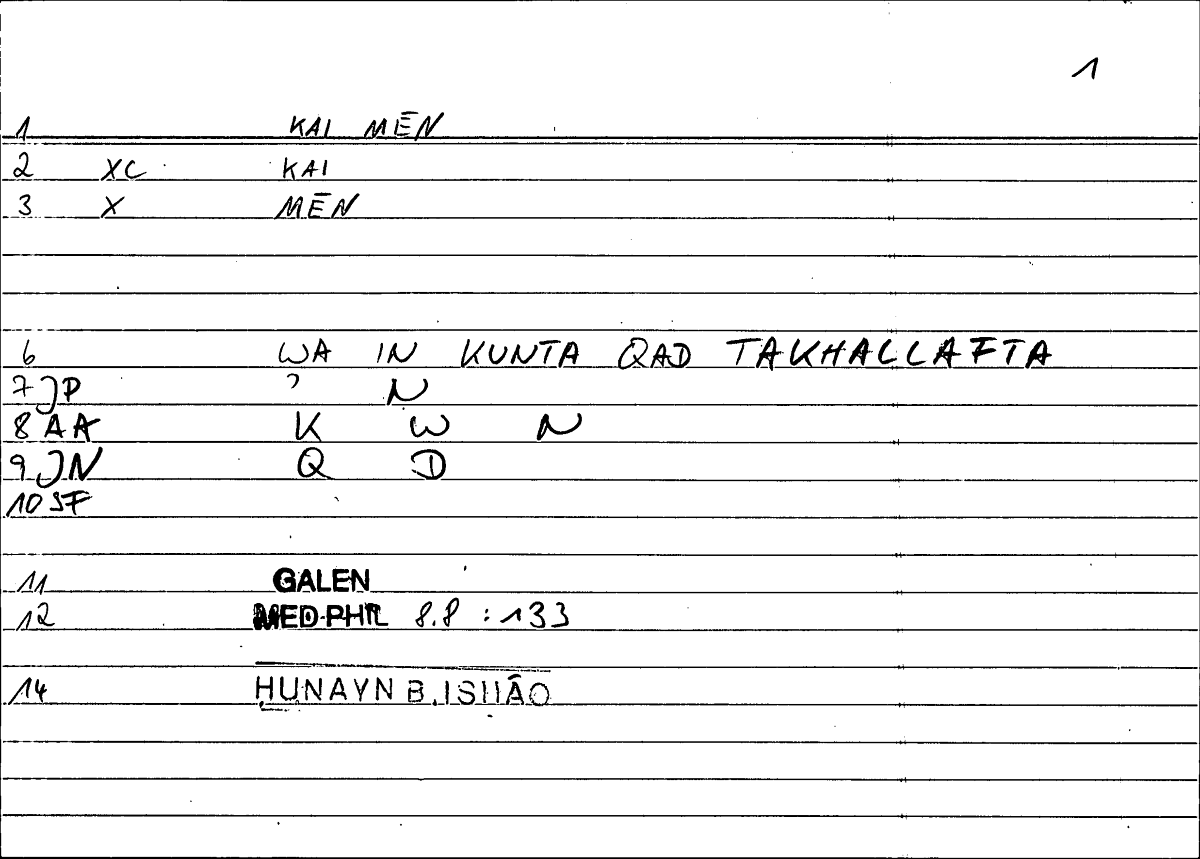 1
1 KAI MĒN
2 XC KAI
3 X MĒN
6 WA IN KUNTA QAD TAKHALLAFTA
7 JP ʾ N
8 AA K W N
9 JN Q D
10 SF
11 GALEN
12 MED-PHIL 8.8 : 133
14 ḤUNAYN B. ISḤĀQ